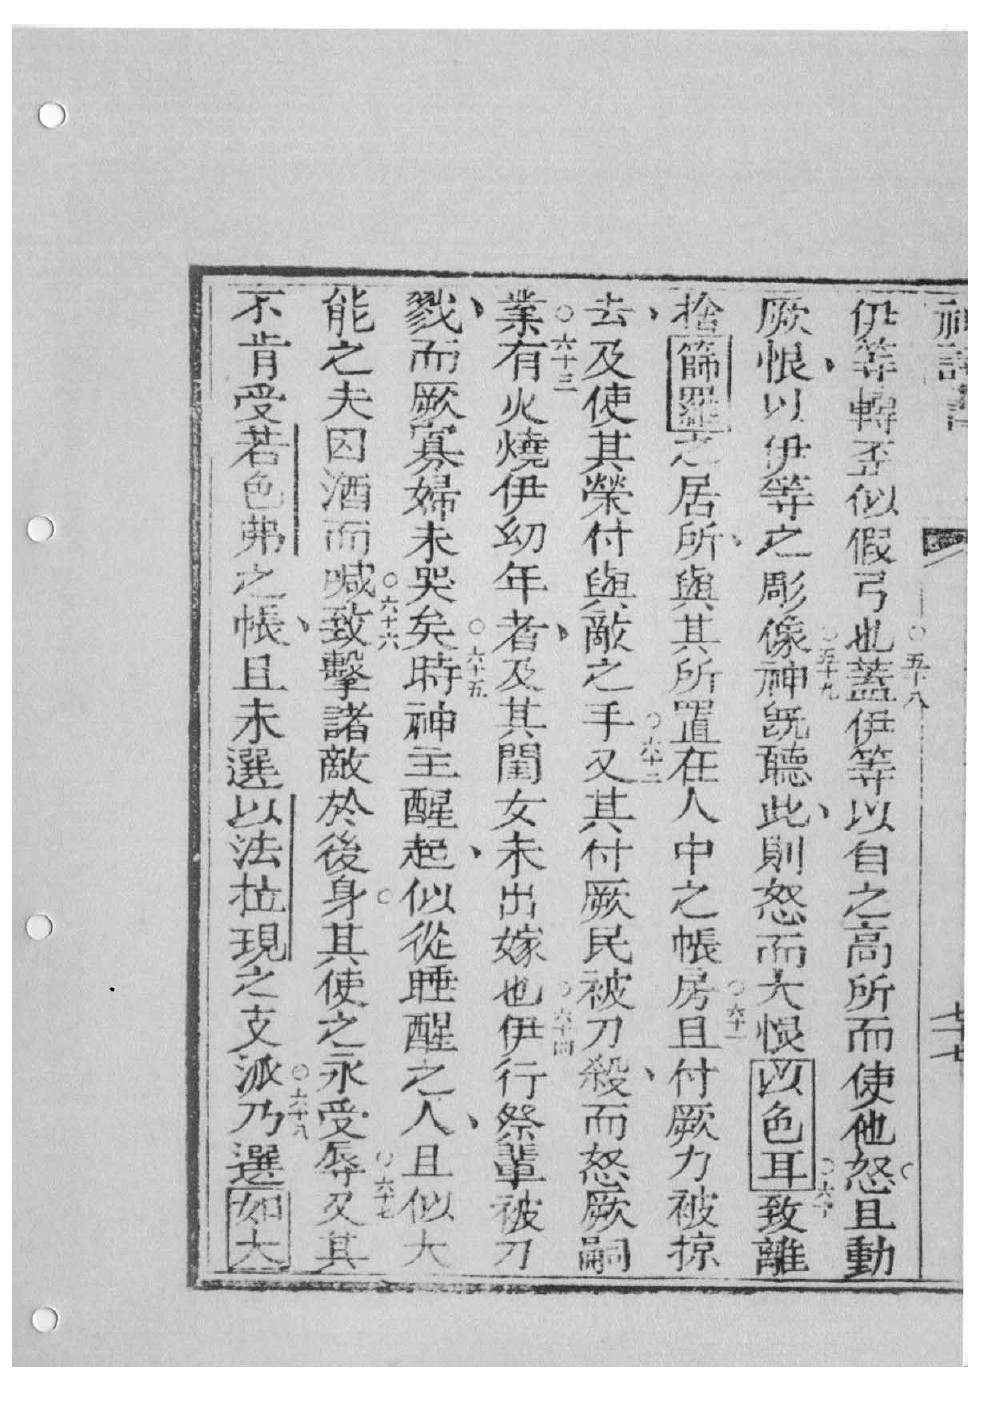 神詩書
七十七
伊等轉歪似假弓也○五十八蓋伊等以自之高所而使他怒且動
厥恨、以伊等之彫像○五十九神既聽此、則怒而大恨以色耳○六十致離
捨篩羅之居所、與其所置在人中之帳房○六十一且付厥力被掠
去、及使其榮付與敵之手○六十二又其付厥民被刀殺、而怒厥嗣
業○六十三有火燒伊幼年者、及其閨女未出嫁也○六十四伊行祭輩被刀
戮、而厥寡婦未哭矣○六十五時神主醒起、似從睡醒之人、且似大
能之夫因酒而喊○六十六致擊諸敵於後身。其使之永受辱○六十七又其
不肯受若色弗之帳、且未選以法拉現之支派○六十八乃選如大